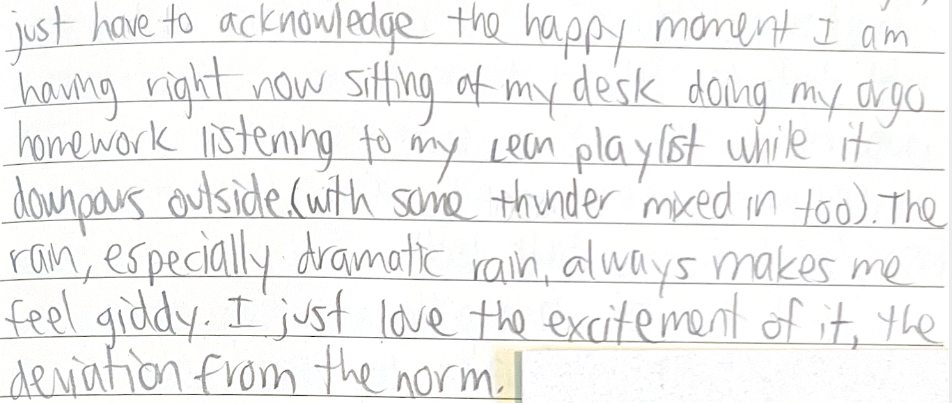 just have to acknowledge the happy moment I am
having right now sitting at my desk doing my orgo
homework listening to my Lean playlist while it
downpours outside. (with some thunder mixed in too). The
rain, especially dramatic rain, always makes me
feel giddy. I just love the excitement of it, the
deviation from the norm.